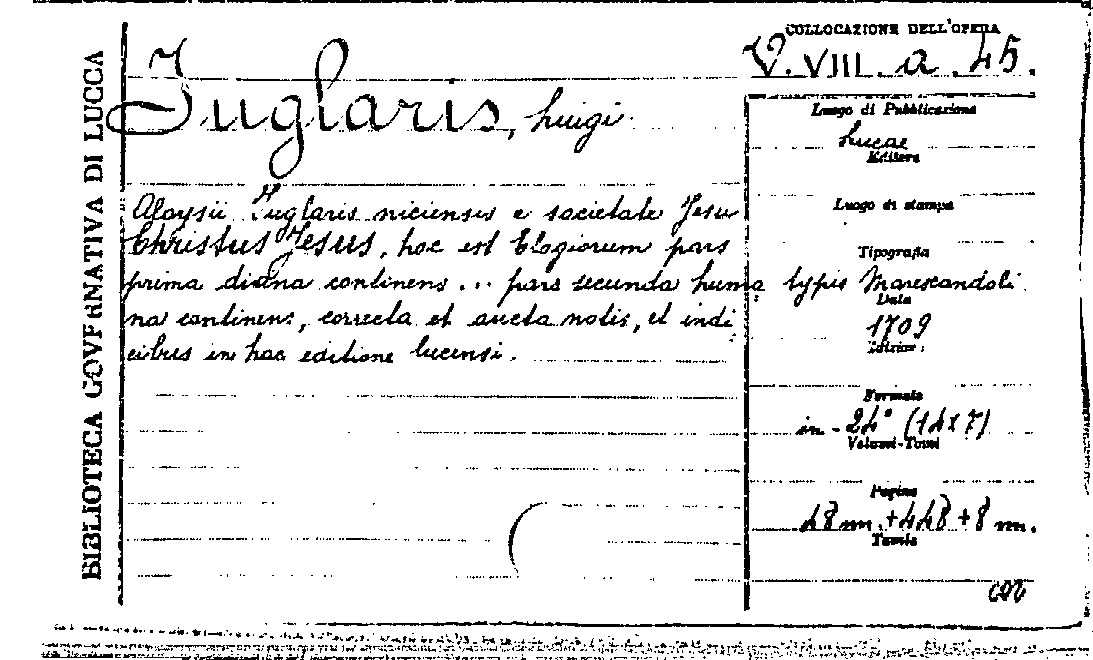 BIBLIOTECA GOVERNATIVA DI LUCCA
COLLOCAZIONE DELL'OPERA
V. VIII. a. 45.
Juglaris, Luigi
Aloysii Juglaris niciensis e societate Jesu
Christus Jesus, hoc est Elogiorum pars
prima divina continens ... pars secunda huma
na continens, correcta et aucta notis, et indi
cibus in hac editione lucensi.
Luogo di Pubblicazione
Lucae
Editore
Luogo di stampa
Tipografia
typis Marescandoli
Data
1709
Edizione
Formato
in-24° (14x7)
Volumi-Tomi
Pagine
48 nn.+448+8 nn.
Tavole